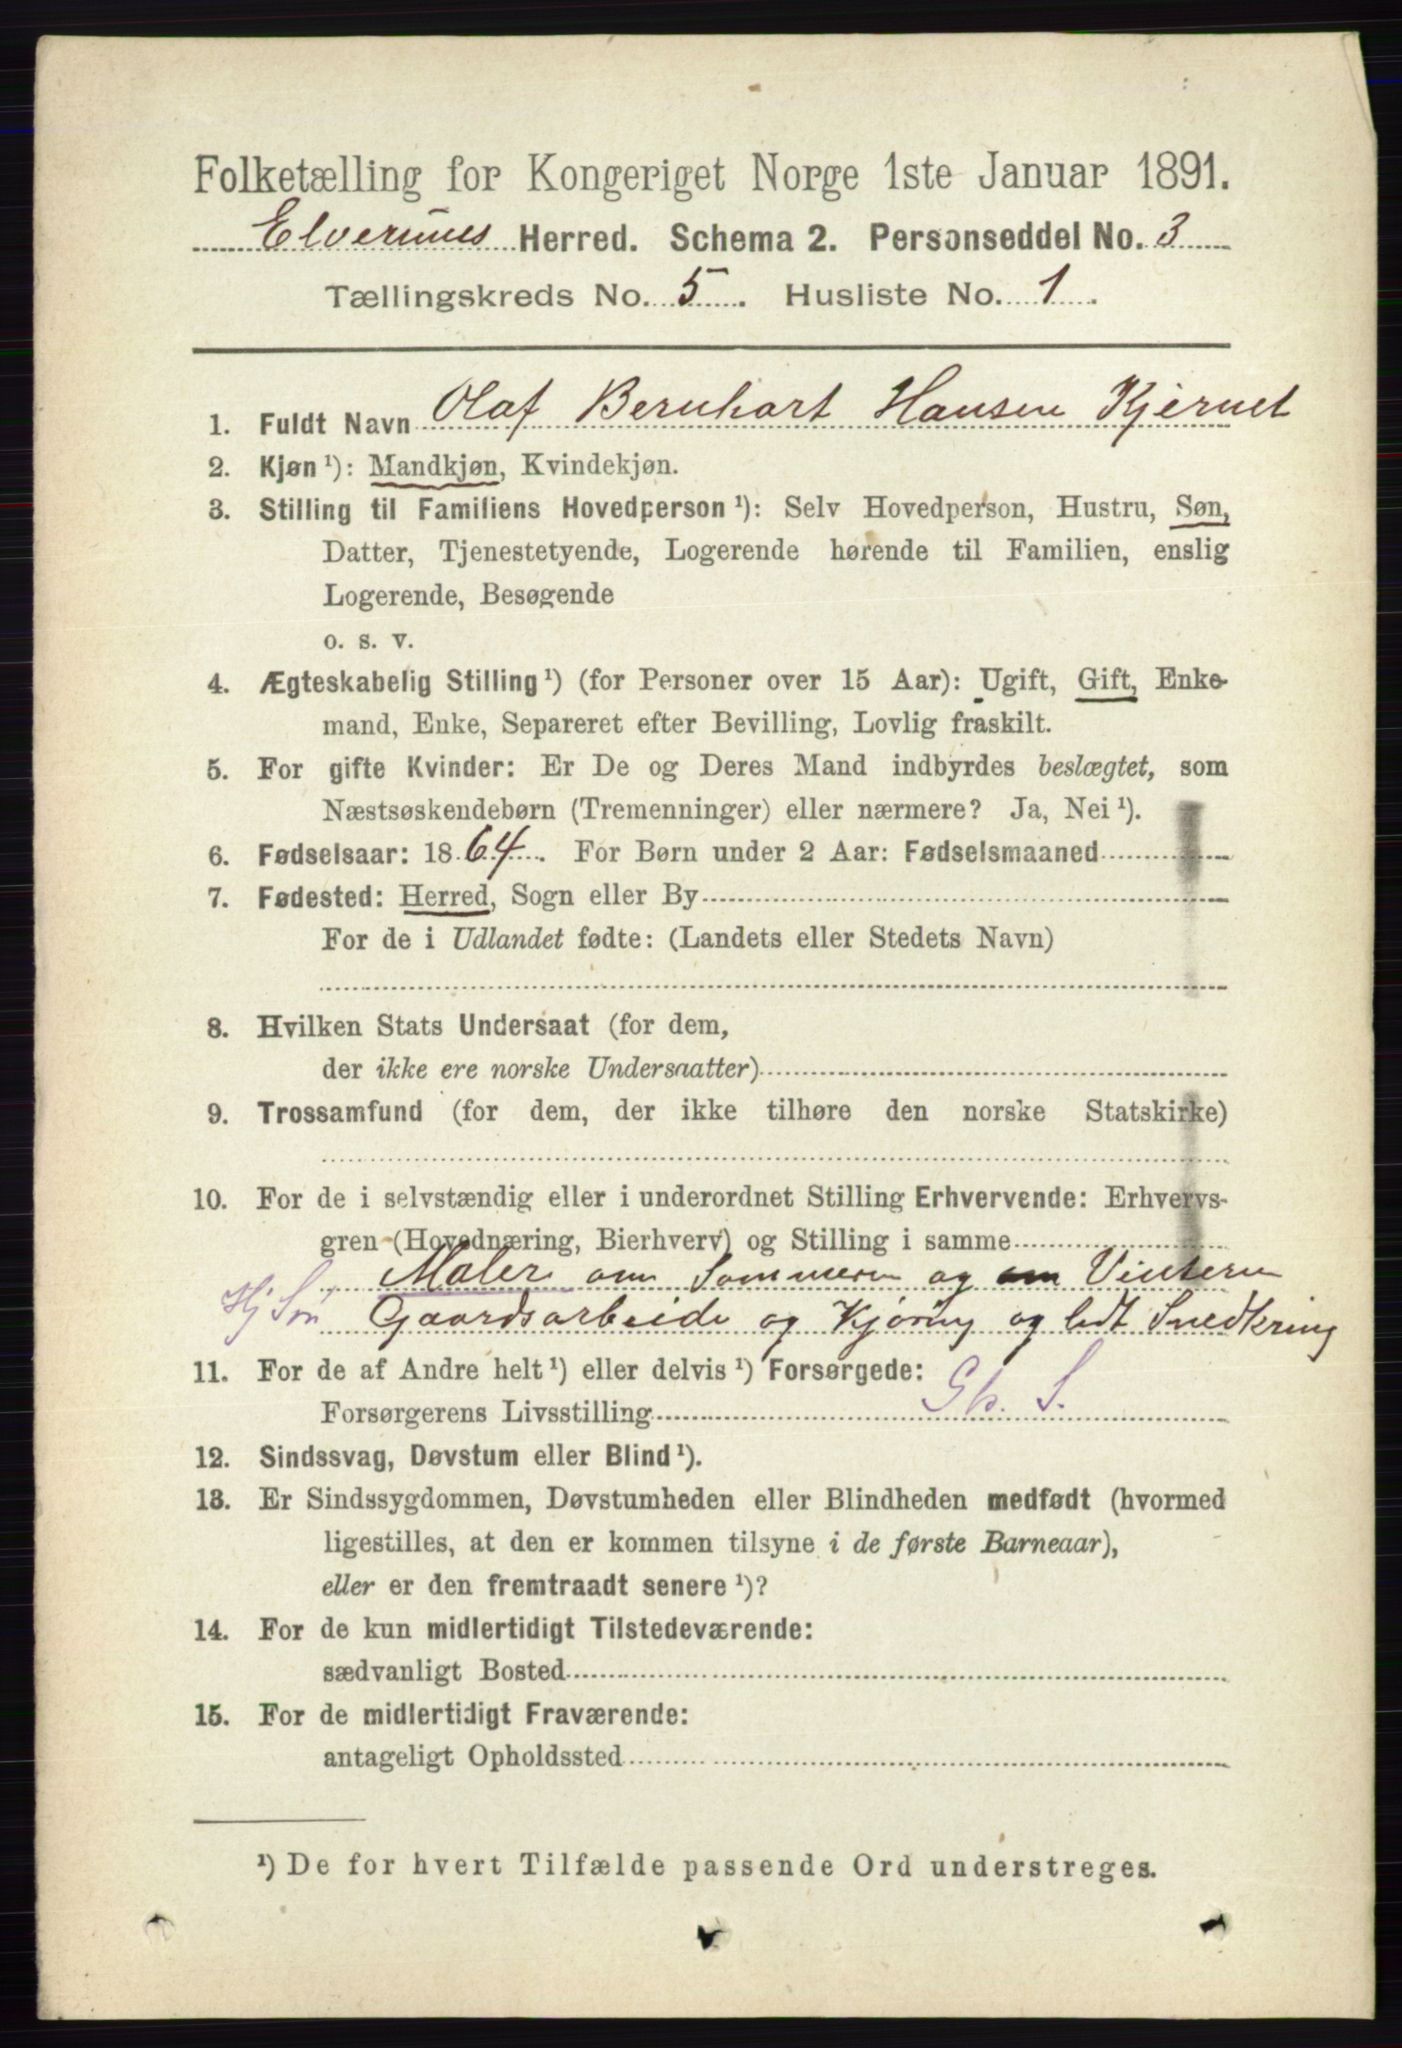 Folketælling for Kongeriget Norge 1ste Januar 1891.
Elverums Herred. Schema 2. Personseddel No. 3
Tællingskreds No. 5. Husliste No. 1.
1. Fuldt Navn Olaf Bernhart Hansen Kjernet
2. Kjøn ¹): Mandkjøn, Kvindekjøn.
3. Stilling til Familiens Hovedperson ¹): Selv Hovedperson, Hustru, Søn,
Datter, Tjenestetyende, Logerende hørende til Familien, enslig
Logerende, Besøgende
o. s. v.
4. Ægteskabelig Stilling ¹) (for Personer over 15 Aar): Ugift, Gift, Enke-
mand, Enke, Separeret efter Bevilling, Lovlig fraskilt.
5. For gifte Kvinder: Er De og Deres Mand indbyrdes beslægtet, som
Næstsøskendebørn (Tremenninger) eller nærmere? Ja, Nei ¹).
6. Fødselsaar: 1864. For Børn under 2 Aar: Fødselsmaaned
7. Fødested: Herred, Sogn eller By
For de i Udlandet fødte: (Landets eller Stedets Navn)
8. Hvilken Stats Undersaat (for dem,
der ikke ere norske Undersaatter)
9. Trossamfund (for dem, der ikke tilhøre den norske Statskirke)
10. For de i selvstændig eller i underordnet Stilling Erhvervende: Erhvervs-
gren (Hovednæring, Bierhverv) og Stilling i samme
Maler om Sommeren og om Vinteren
Hj Søn Gaardsarbeide og Kjøring og lidt Snedkering
11. For de af Andre helt ¹) eller delvis ¹) Forsørgede:
Forsørgerens Livsstilling Gb. S.
12. Sindssvag, Døvstum eller Blind ¹).
13. Er Sindssygdommen, Døvstumheden eller Blindheden medfødt (hvormed
ligestilles, at den er kommen tilsyne i de første Barneaar),
eller er den fremtraadt senere ¹)?
14. For de kun midlertidigt Tilstedeværende:
sædvanligt Bosted
15. For de midlertidigt Fraværende:
antageligt Opholdssted
¹) De for hvert Tilfælde passende Ord understreges.